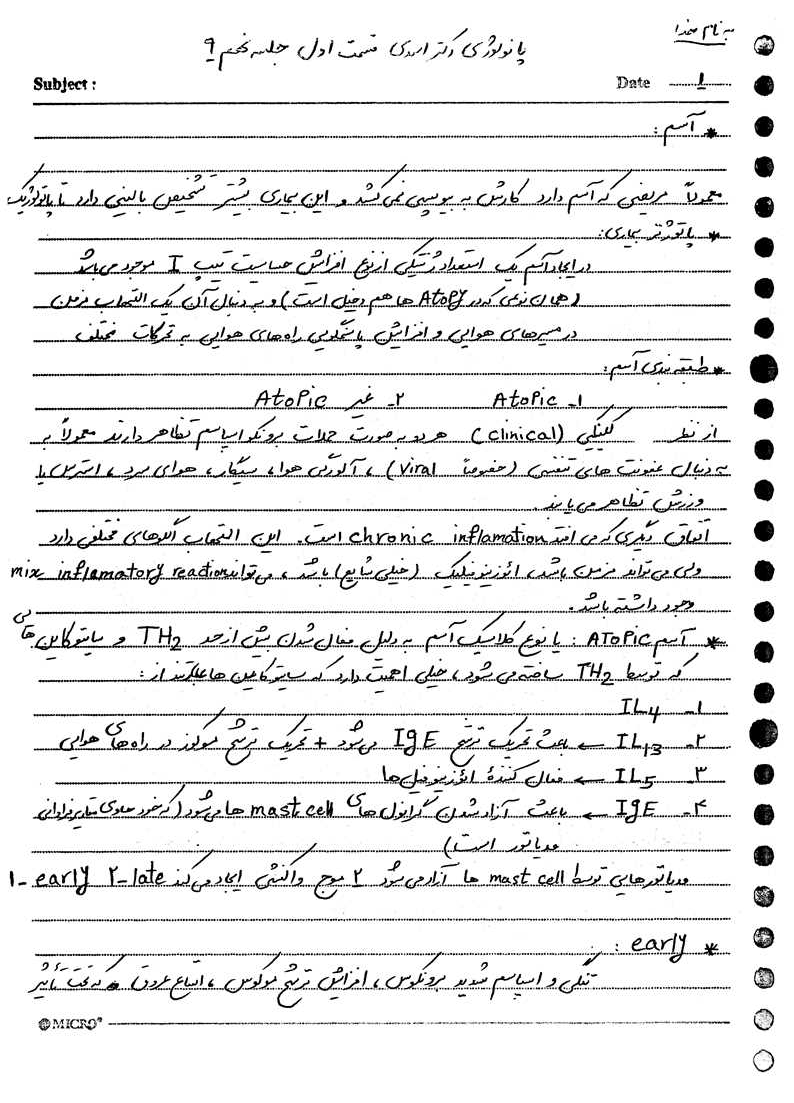 به نام خدا
پاتولوژی دکتر اسدی قسمت اول جلسه نهم ۹
Subject : Date 1
* آسم :
معمولاً مریضی که آسم دارد کارش به بیوپسی نمی کشد و این بیماری بیشتر تشخیص بالینی دارد تا پاتولوژیک
* پاتوژنز بیماری:
در ایجاد آسم یک استعداد ژنتیکی از نوع افزایش حساسیت تیپ I موجود می باشد
(همان نوعی که در Atopy ها هم دخیل است) و به دنبال آن یک التهاب مزمن
در مسیرهای هوایی و افزایش پاسخگویی راه های هوایی به تحریکات مختلف
* طبقه بندی آسم:
۱- Atopic ۲- غیر Atopic
از نظر کلینیکی (clinical) هر دو به صورت حملات برونکواسپاسم تظاهر دارند معمولاً به
به دنبال عفونت های تنفسی (خصوصاً viral) ، آلودگی هوا، سیگار، هوای سرد ، استرس یا
ورزش تظاهر می یابند.
اتفاق دیگری که می افتد chronic inflamation است. این التهاب الگوهای مختلفی دارد
ولی می تواند مزمن باشد، ائوزینوفیلیک (خیلی شایع) باشد ، می تواند mix inflamatory reaction
وجود داشته باشد.
* آسم ATOPIC : یا نوع کلاسیک آسم به دلیل فعال شدن بیش از حد TH2 و سایتوکاین هایی
که توسط TH2 ساخته می شود ، خیلی اهمیت دارد که سایتوکاین ها عبارتند از :
۱- IL4
۲- IL13 ← باعث تحریک ترشح IgE می شود + تحریک ترشح موکوز در راه های هوایی
۳- IL5 ← فعال کنندهٔ ائوزینوفیل ها
۴- IgE ← باعث آزاد شدن گرانول های mast cell ها می شود (که خود حاوی مقادیر فراوانی
مدیاتور است)
مدیاتورهایی توسط mast cell ها آزاد می شود ۲ موج واکنشی ایجاد می کند ۱- early ۲- late
* early :
تنگی و اسپاسم شدید برونکوس ، افزایش ترشح موکوس ، اتساع عروق که تحت تأثیر
MICRO